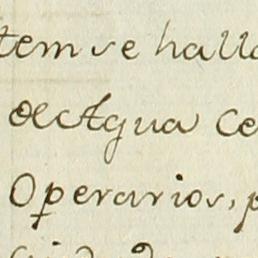 tem se halla
de Agua Ce
Operarios, p